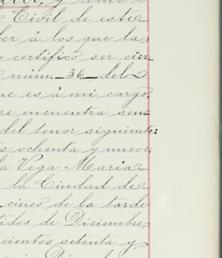 y ante e
Civil de este
ber á los que la
certifico ser cier
núm. 36 del
que es á mi cargo
se encuentra sen
del tenor siguiente:
os ochenta y nueve
la Vega Maria
la Ciudad de
cinco de la tarde
tidos de Diciembre
cientos setenta y